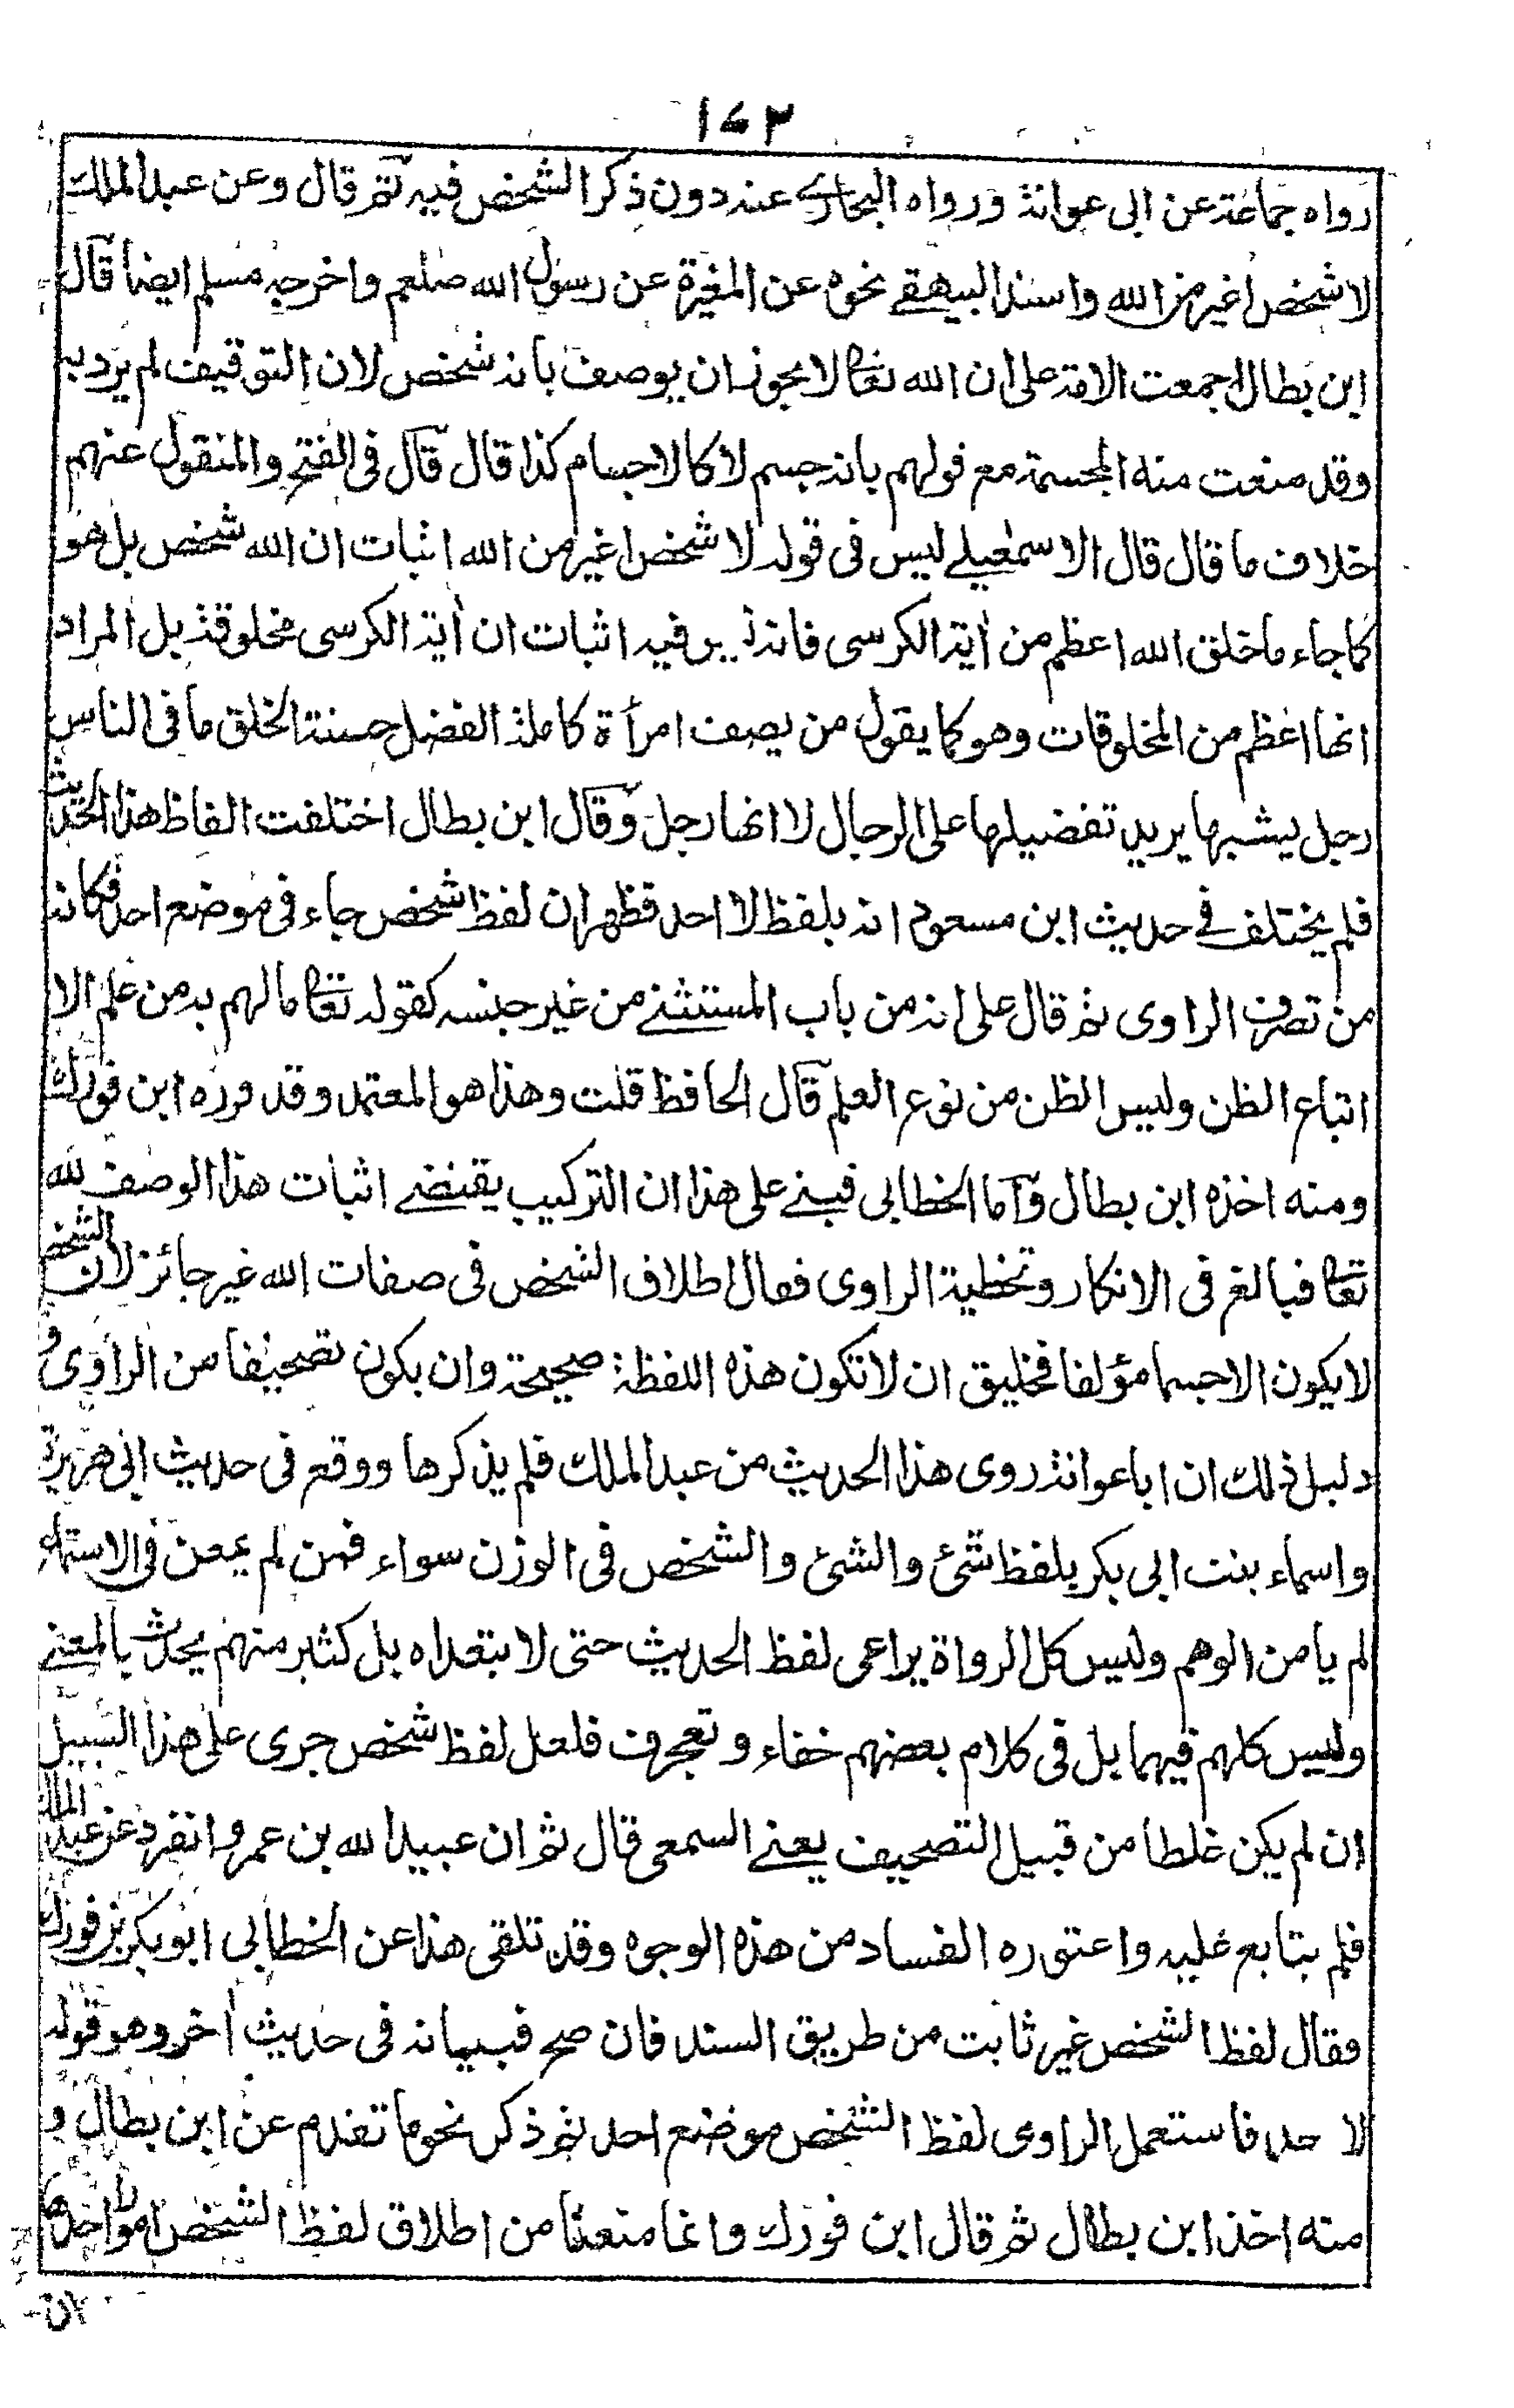 ١٧٢
رواه جماعة عن ابى عوانة ورواه البخارى عنه دون ذكر الشخص فيه ثم قال وعن عبد الملك
لا شخص اغير من الله واسند البيهقى نحوه عن المغيرة عن رسول الله صلعم واخرجه مسلم ايضا قال
ابن بطال اجمعت الامة على ان الله تعا لا يجوز ان يوصف بانه شخص لان التوقيف لم يرد به
وقد منعت منه المجسمة مع قولهم بانه جسم لا كالاجسام كذا قال قال فى الفتح والمنقول عنهم
خلاف ما قال قال الاسمعيلى ليس فى قوله لا شخص اغير من الله اثبات ان الله شخص بل هو
كما جاء ما خلق الله اعظم من آية الكرسى فانه ليس فيه اثبات ان آية الكرسى مخلوقة بل المراد
انها اعظم من المخلوقات وهو كما يقول من يصف امرأة كاملة الفضل حسنة الخلق ما فى الناس
رجل يشبهها يريد تفضيلها على الرجال لا انها رجل وقال ابن بطال اختلفت الفاظ هذا الحديث
فلم يختلف فى حديث ابن مسعود انه بلفظ لا احد فظهر ان لفظ شخص جاء فى موضع احد فكانه
من تصرف الراوى ثم قال على انه من باب المستثنى من غير جنسه كقوله تعا ما لهم به من علم الا
اتباع الظن وليس الظن من نوع العلم قال الحافظ قلت وهذا هو المعتمد وقد قرره ابن فورك
ومنه اخذه ابن بطال واما الخطابى فبنى على هذا ان التركيب يقتضى اثبات هذا الوصف لله
تعا فبالغ فى الانكار وتخطية الراوى فقال اطلاق الشخص فى صفات الله غير جائز لان الشخص
لا يكون الا جسما مؤلفا فخليق ان لا تكون هذه اللفظة صحيحة وان يكون تصحيفا من الراوى و
دليل ذلك ان ابا عوانة روى هذا الحديث من عبد الملك فلم يذكرها ووقع فى حديث ابى هريرة
واسماء بنت ابى بكر بلفظ شئ والشئ والشخص فى الوزن سواء فمن لم يمعن فى الاستماع
لم يامن الوهم وليس كل الرواة يراعى لفظ الحديث حتى لا يتعداه بل كثير منهم يحدث بالمعنى
وليس كلهم فيهما بل فى كلام بعضهم خفاء وتعجرف فلعل لفظ شخص جرى على هذا السبيل
ان لم يكن غلطا من قبيل التصحيف يعنى السمعى قال ثم ان عبيد الله بن عمرو انفرد عن عبد الملك
فلم يتابع عليه واعتوره الفساد من هذه الوجوه وقد تلقى هذا عن الخطابى ابو بكر بن فورك
فقال لفظ الشخص غير ثابت من طريق السند فان صح فبيانه فى حديث آخر وهو قوله
لا حد فاستعمل الراوى لفظ الشخص موضع احد ثم ذكر نحو ما تقدم عن ابن بطال و
منه اخذ ابن بطال ثم قال ابن فورك وانما منعنا من اطلاق لفظ الشخص امور احدها
ان